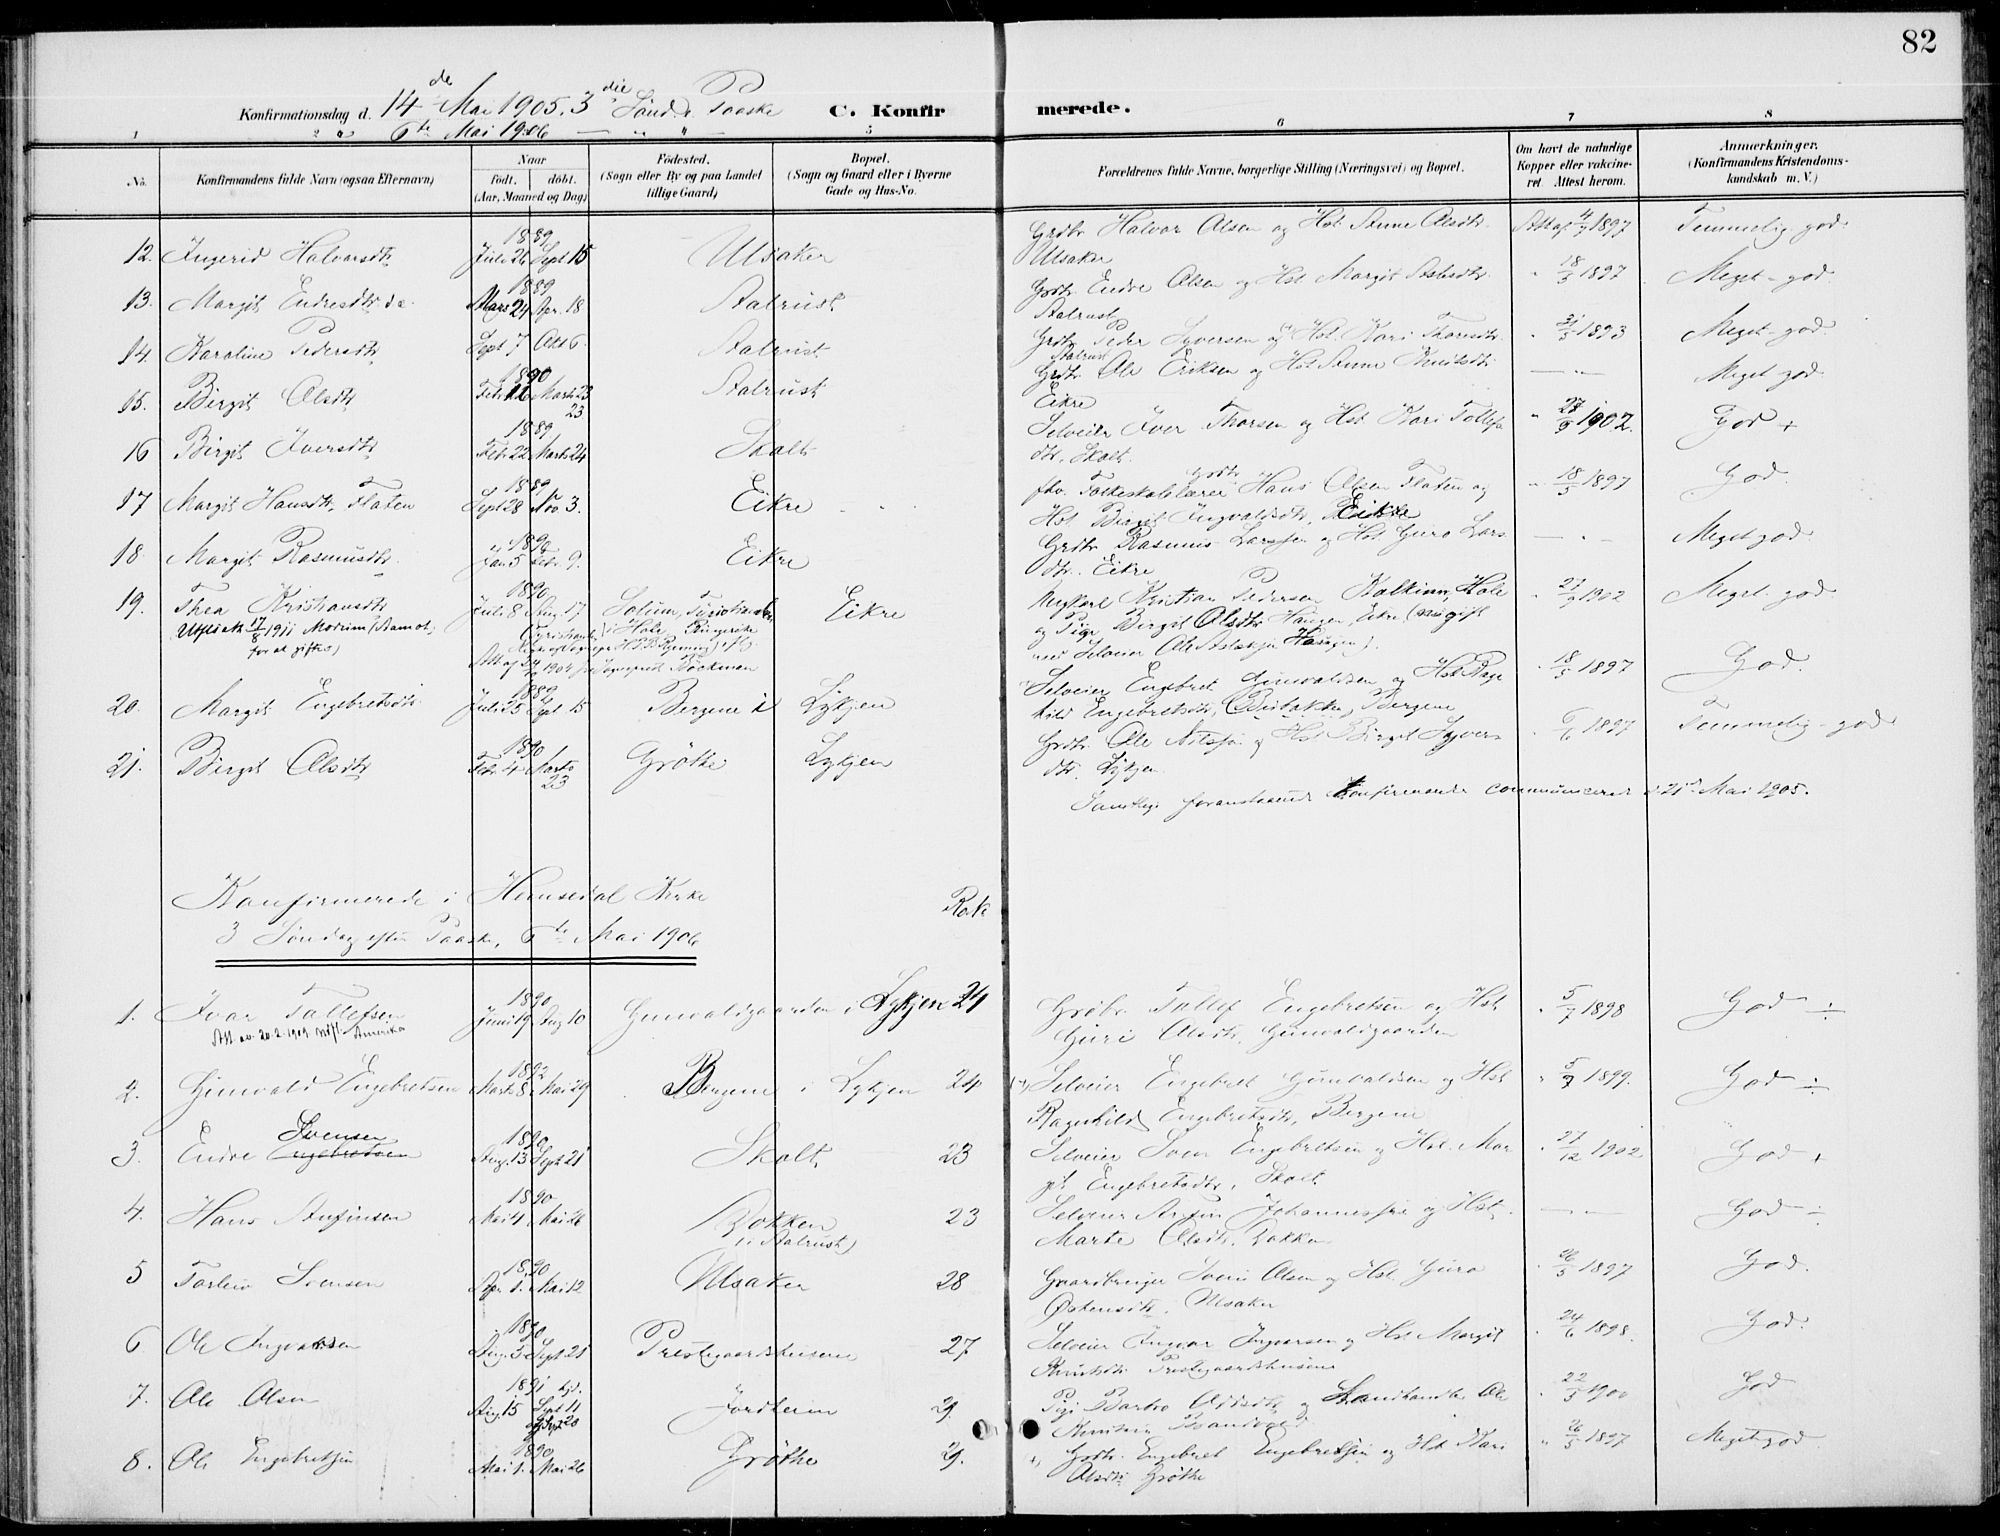 82
Konfirmationsdag d. 14de Mai 1905. 3die Sönd. e. Paaske C. Konfirmerede.
6te Mai 1906 — " —
1 2 5 6 7 8
No. Konfirmandens fulde Navn (ogsaa Efternavn) Naar født. døbt. (Aar, Maaned og Dag) Fødested. (Sogn eller By og paa Landet tillige Gaard) Bopæl. (Sogn og Gaard eller i Byerne Gade og Hus-No. Forældrenes fulde Navne, borgerlige Stilling (Næringsvei) og Bopæl. Om havt de naturlige Kopper eller vakcineret Attest herom. Anmærkninger. (Konfirmandens Kristendomskundskab m. V.)
12. Ingerid Halvorsdtr 1889 Juli 26 Sept 15 Ulsaker Grdbr Halvor Olsen og Hst. Anne Olsdtr. Ulsaker Att af 4/9 1897 Temmelig god
13. Margit Endresdtr 1889 Mars 24 Apr. 18 Aalrust Grdbr. Endre Olsen og Hst. Margit Aslesdtr. Aalrust " 18/5 1897 Meget god
14. Karoline Pedersdtr Sept 7 Okt 6. Aalrust Grdbr. Peder Syversen og Hst. Kari Thorsdtr. Aalrust " 31/5 1893 Meget god
15. Birgit Olsdtr 1890 Febr 16 Marts 23 23 Aalrust Grdbr. Ole Eriksen og Hst Anne Knutsdtr Eikre — " — Meget god
16 Birgit Iversdtr 1889 Febr. 22 Marts 24 Skolt Selveier Iver Thorsen og Hst. Kari Tollefsdtr, Skolt. " 27/9 1902. God +
17 Margit Hansdtr. Flaten 1889 Sept 28 Nov 3. Eikre fhv. Folkeskolelærer Grdbr. Hans Olsen Flaten og Hst. Birgit Ingvaldsdtr, Eikre " 18/5 1897 God
18 Margit Rasmusdtr. 1890 Jan 5 Febr 9. Eikre Grdbr. Rasmus Larssen og Hst Guro Larsdtr. Eikre — " — Meget god
19. Thea Kristiansdtr 1890 Juli 8 Aug. 17 Solum, Eikre Ungkarl Kristian Pedersen, Hole " 27/9 1902 Meget god
Utflyttet 17/8 1911 Modum (Aamot, for at giftes) i Hole, Ringerike og Pige Birgit Olsdtr Haugen, Eikre (nu gift
Att af 24/ 1904 fra Sogneprest Böckman med Selveier Ole Haugen).
20. Margit Engebretsdtr 1889 Juli 25 Sept 15 Bergene i Lykjen Selveier Engebret Gunvaldsen og Hst Ragnhild Engebretsdtr, Bergene " 18/5 1897 God
21. Birgit Olsdtr 1890 Febr 4 Marts 23 Gröthe Lykjen Grdbr. Ole Nilssen og Hst Birgit Syversdtr. Lykjen " 6/6 1897 Temmelig god
Samtlige foranstaaende Konfirmander communicerede d. 21. Mai 1905.
Konfirmerede i Hemsedal Kirke
3 Söndag efter Paaske, 6te Mai 1906
1. Ivar Tollefsen 1890 Juni 19 Aug 10 Gunvaldgaarden i Lykjen 24 Grdbr. Tollef Engebretsen og Hst. Guri Olsdtr, Gunvaldgaarden " 5/7 1898 God ÷
Att. av 20.2.1909 utfl. Amerika
2. Gunvald Engebretsen 1892 Marts 8 Mai 29 Bergene i Lykjen 24 Selveier Engebret Gunvaldsen og Hst Ragnhild Engebretsdtr, Bergene " 5/7 1899. God ÷
3. Endre Svensen Engebretsen 1890 Aug. 13 Sept 21 Skolt 23 Selveier Sven Engebretsen og Hst. Margit Engebretsdtr, Skolt " 27/12 1902 God +
4. Hans Anfinsen 1890 Mai 4 Mai 26 Bokken (i Aalrust) 23 Selveier Anfin Johannessen og Hst. Marte Olsdtr. Bokken — — God ÷
5 Torleiv Svensen 1890 Apr. 1. Mai 12 Ulsaker 28 Gaardbruger Svein Olsen og Hst Guro Östensdtr, Ulsaker " 26/5 1897 God.
6 Ole Ingvarsen 1890 Aug. 5 Sept 21 Prestegaardshusene 27 Selveier Ingvar Ingvarsen og Hst Margit Knutsdtr Prestegaardshusene " 24/6 1898. God.
7. Ole Olsen 1891 hjd. Aug. 15 Sept 11 Sept 20 Jordheim 29. Pige Barbro Oddsdtr og Landhandler Ole Knutsen " 22/5 1900 God
8. Ole Engebretsen 1890 Mai 1. Mai 26 Gröthe 29. Grdbr. Engebret Engebretsen og Hst Kari Olsdtr Gröthe " 26/5 1897 Meget god